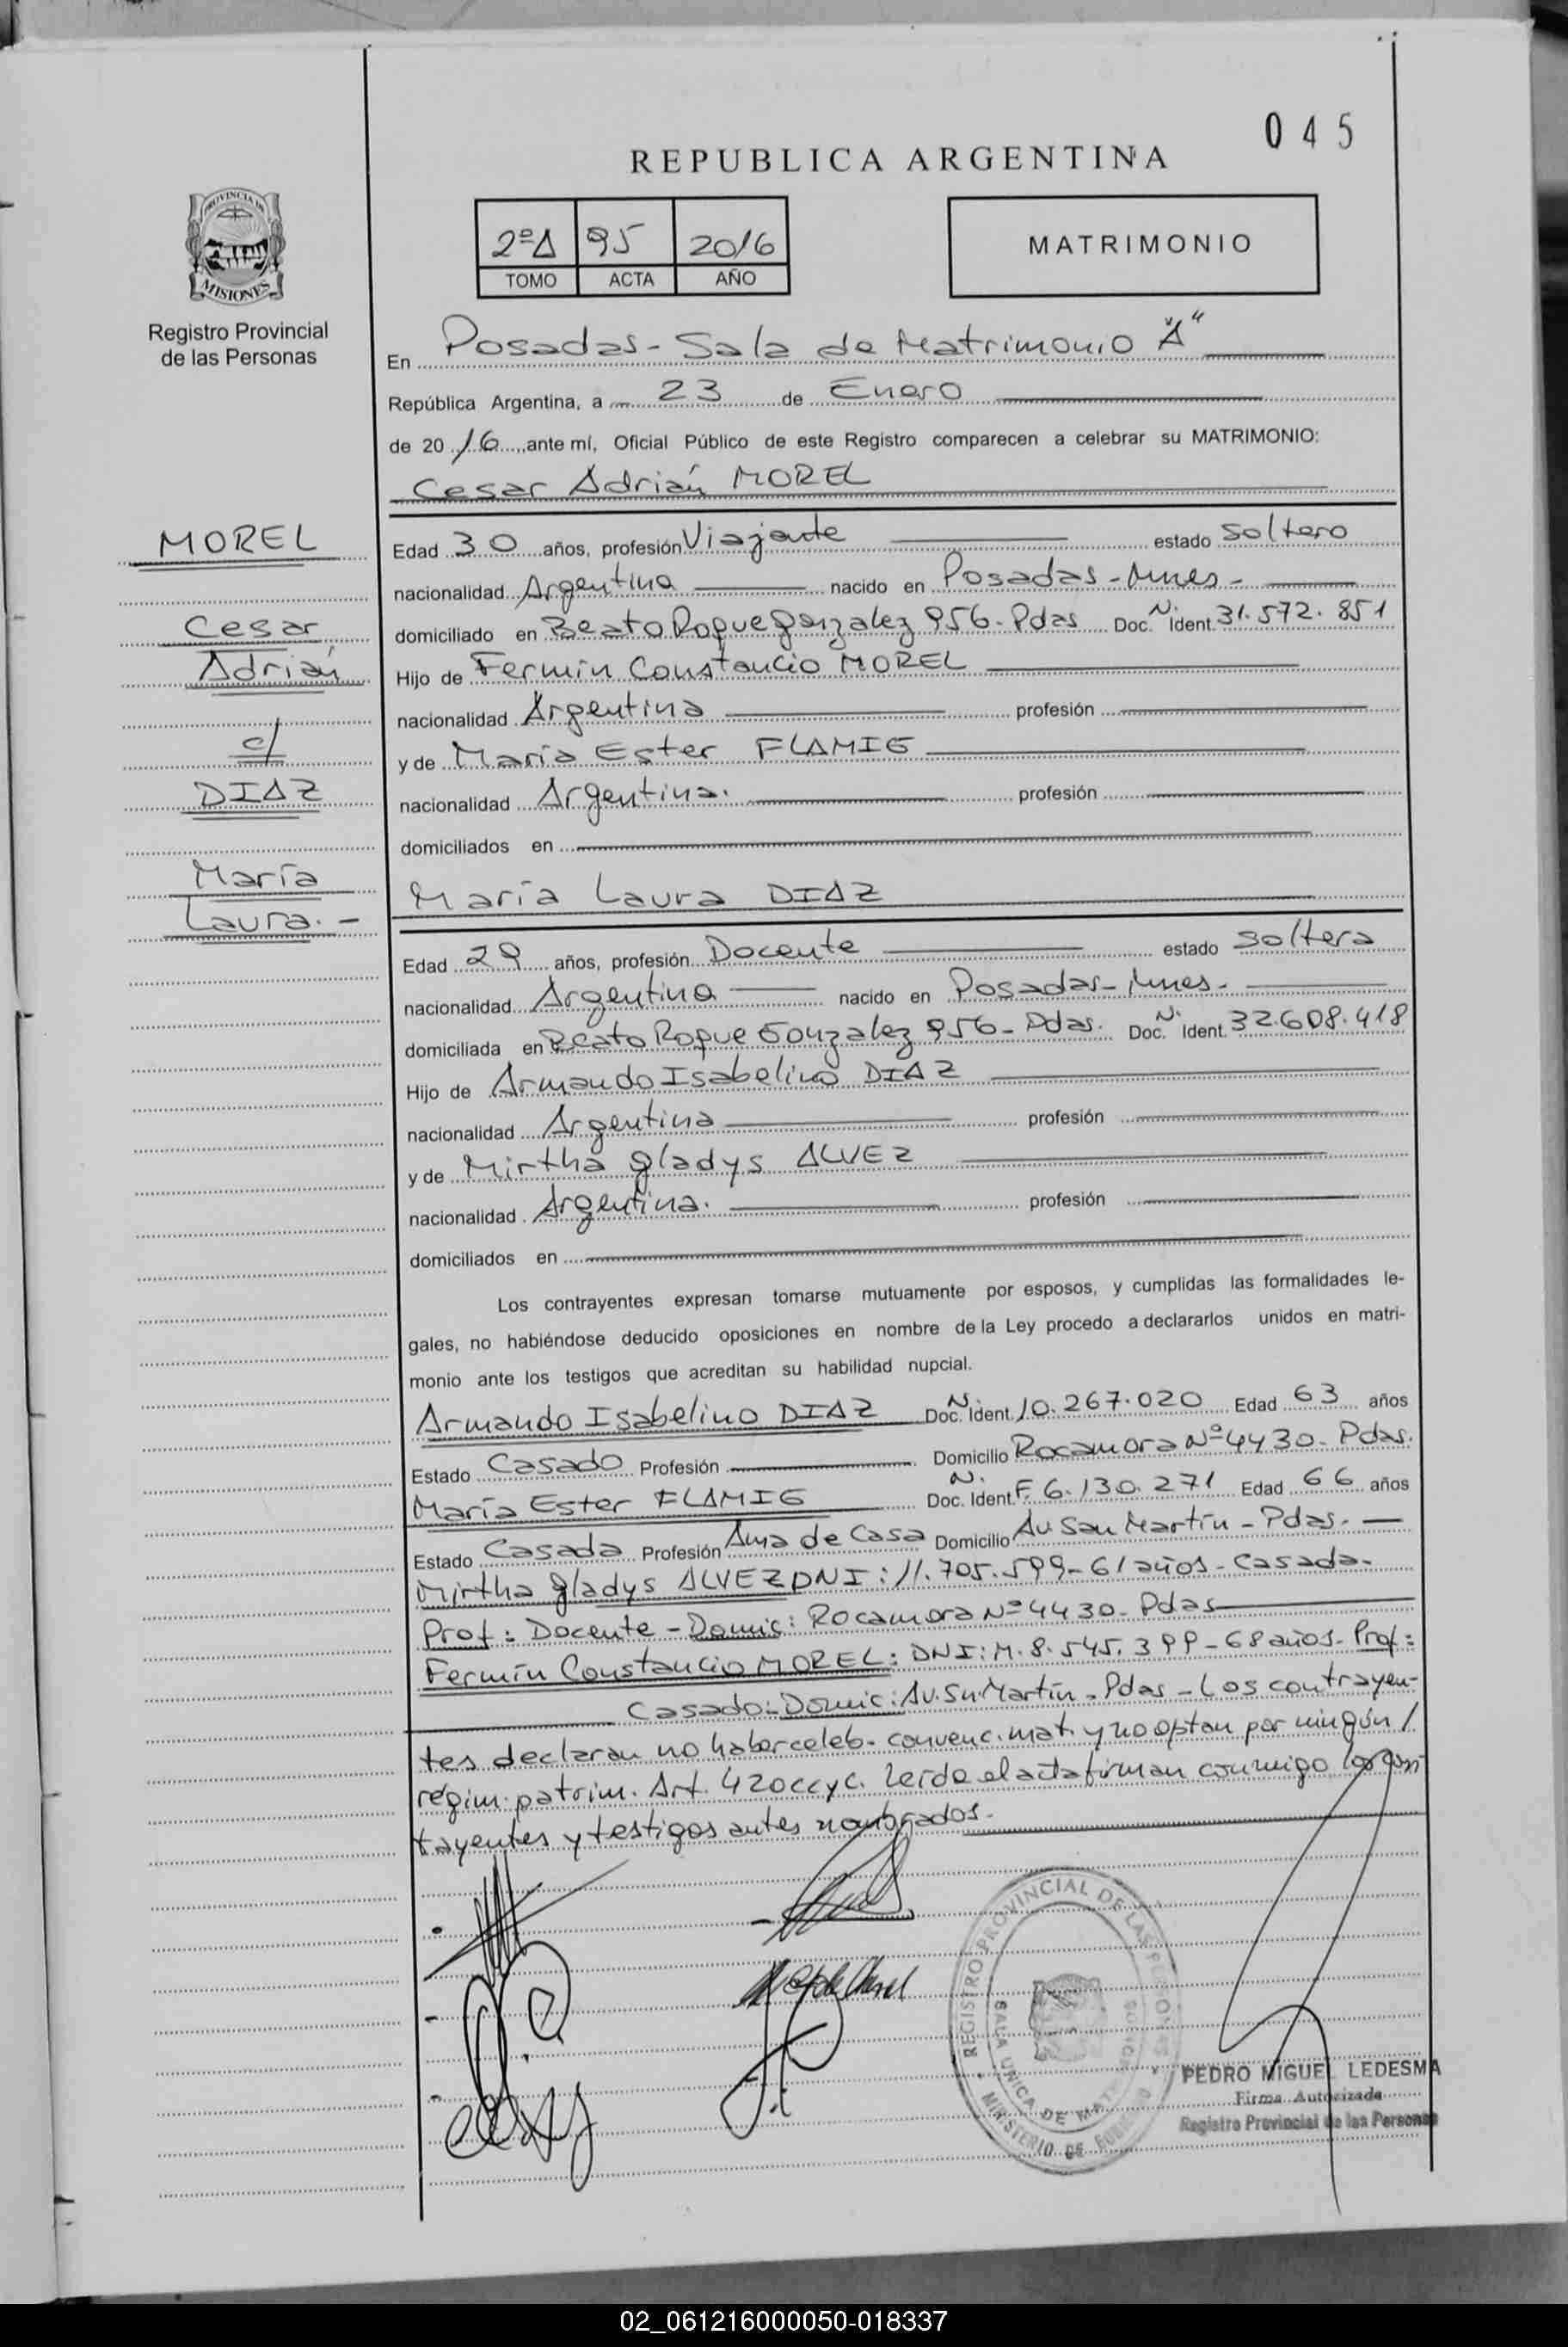 045
REPUBLICA ARGENTINA
PROVINCIA DE
MISIONES
Registro Provincial
de las Personas
2ºA 95 2016
TOMO ACTA AÑO
MATRIMONIO
En Posadas - Sala de Matrimonio "A"
República Argentina, a 23 de Enero
de 2016, ante mí, Oficial Público de este Registro comparecen a celebrar su MATRIMONIO:
Cesar Adrián MOREL
MOREL
Cesar
Adrián
c/
DIAZ
María
Laura.-
Edad 30 años, profesión Viajante estado soltero
nacionalidad Argentina nacido en Posadas - Mnes -
domiciliado en Beato Roque gonzalez 956- Pdas Doc. N. Ident. 31.572.851
Hijo de Fermín Constancio MOREL
nacionalidad Argentina profesión
y de María Ester FLAMIG
nacionalidad Argentina. profesión
domiciliados en
María Laura DIAZ
Edad 29 años, profesión Docente estado soltera
nacionalidad Argentina nacido en Posadas - Mnes -
domiciliada en Beato Roque Gonzalez 956- Pdas. Doc. N. Ident. 32.608.418
Hijo de Armando Isabelino DIAZ
nacionalidad Argentina profesión
y de Mirtha gladys ALVEZ
nacionalidad Argentina. profesión
domiciliados en
Los contrayentes expresan tomarse mutuamente por esposos, y cumplidas las formalidades le-
gales, no habiéndose deducido oposiciones en nombre de la Ley procedo a declararlos unidos en matri-
monio ante los testigos que acreditan su habilidad nupcial.
Armando Isabelino DIAZ Doc. N. Ident. 10.267.020 Edad 63 años
Estado Casado Profesión Domicilio Rocamora Nº 4430- Pdas.
María Ester FLAMIG Doc. N. Ident. F. 6.130.271 Edad 66 años
Estado Casada Profesión Ama de Casa Domicilio Av. San Martín - Pdas.-
Mirtha gladys ALVEZ DNI: 11.705.599- 61 años - Casada-
Prof: Docente - Domic: Rocamora Nº 4430- Pdas
Fermín Constancio MOREL: DNI: M. 8.545.399- 68 años- Prof:
Casado- Domic: Av. Sn. Martín - Pdas - Los contrayen-
tes declaran no haber celeb. convenc. mat. y no optan por ningún /
régim. patrim. Art. 420 ccyc. Leída el acta firman conmigo los con
trayentes y testigos antes nombrados.-
REGISTRO PROVINCIAL DE LAS PERSONAS
SALA UNICA DE
MINISTERIO DE
PEDRO MIGUEL LEDESMA
Firma Autorizada
Registro Provincial de las Personas
02_061216000050-018337